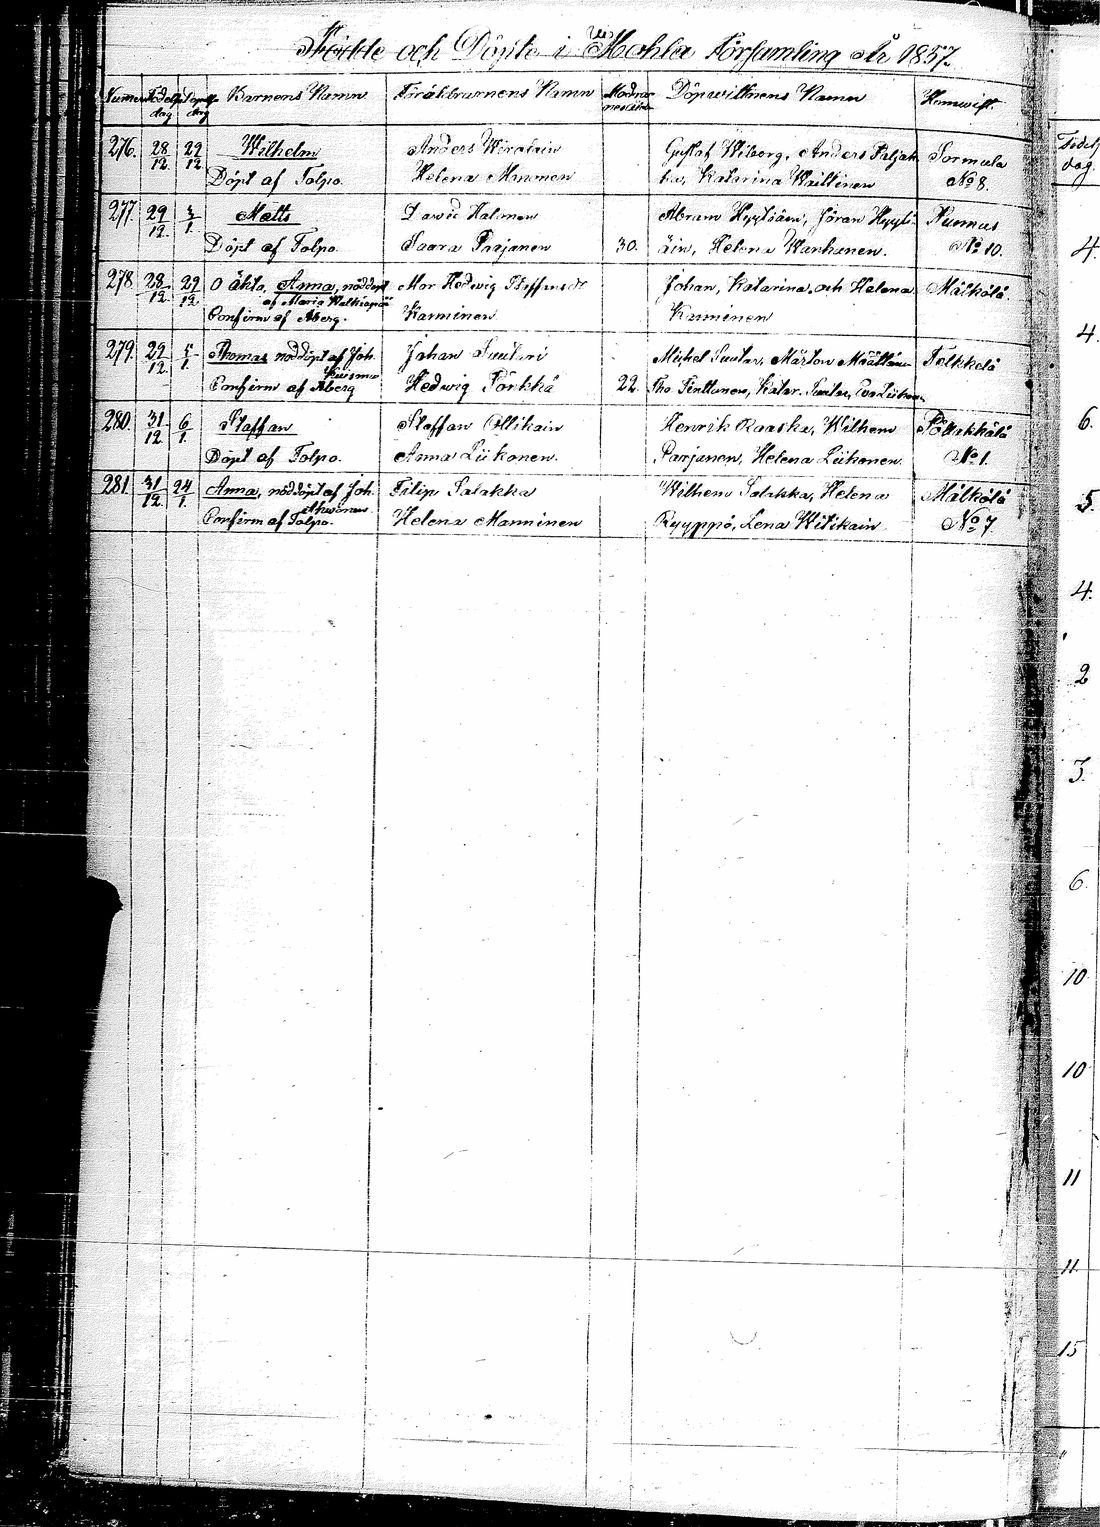 Födde och Döpte i Mohla Församling År 1857.
Numer Födelse dag Döpelse dag Barnens Namn Föräldrarnens Namn Modrens Döpvittnens Namn Hemvist
276. 28/12. 29/12. Wilhelm Anders Wiralain Gustaf Wiborg, Anders Paljak Sormula
Döpt af Tolpo. Helena Mannonen ka, Katarina Waittinen No 8.
277. 29/12. 3/1. Matts David Halonen Abram Hyytiäin, Jöran Hyyti Kunnus
Döpt af Tolpo. Saara Parjanen 30. äin, Helena Wanhanen. No 10.
278. 28/12 29/12. O äkta, Anna, nöddöpt Mor Hedwig Steffansdr Johan, Katarina, och Helena Mälkölä.
af Maria
Confirm af Åberg. Karminen Kuiminen
279. 29/12 5/1. Thomas nöddöpt af Joh. Johan Suutari Michel Suutar, Mårten Määttänen Tolkkola
Kuisma
Confirm af Åberg Hedwig Törkkö 22. Tho. Penttonen, Katar. Suutar, Eva Liikonen
280. 31/12. 6/1. Staffan Staffan Ollikain Henrik Raaska, Wilhem Pölläkkälä
Döpt af Tolpo. Anna Liikonen. Parjanen, Helena Liikonen. No 1.
281. 31/12. 24/1. Anna, nöddöpt af Joh. Filip Salakka Wilhem Salakka, Helena Mälkölä
Ahvonen
Confirm af Tolpo. Helena Manninen Ryyppö, Lena Witikain No 7.
Födels
dag.
4.
4.
6.
5.
4.
2
3.
6.
10
10
11
11
15